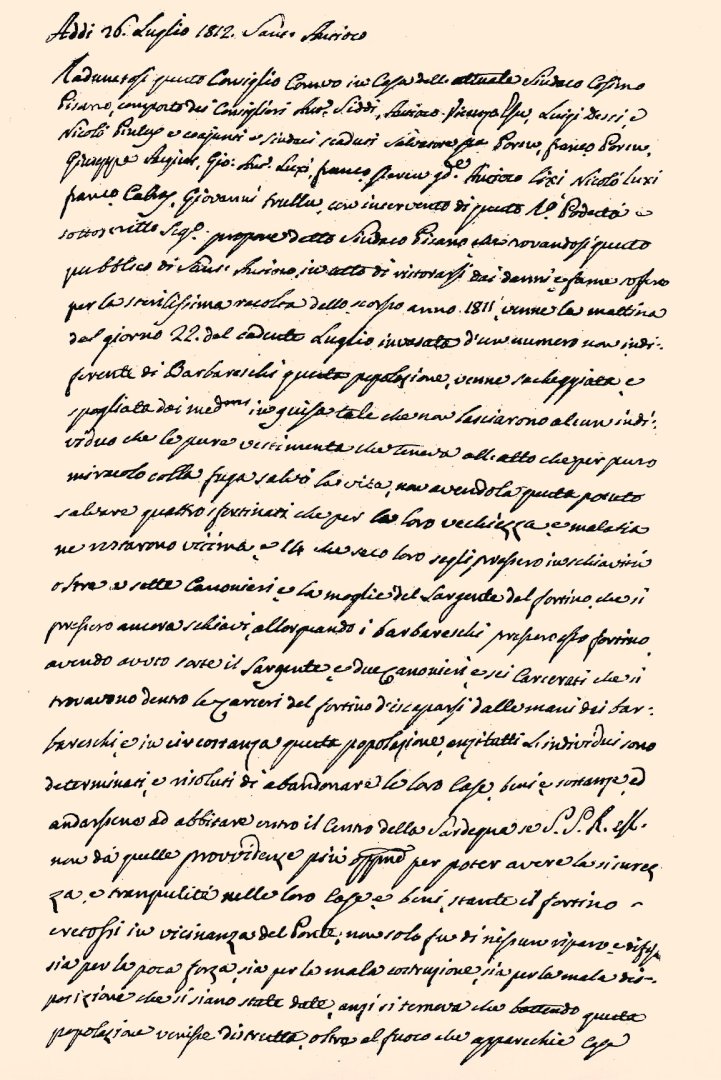 Addi 26. Luglio 1812. Sant. Antioco
Radunatosi questo Consiglio Comvo in Casa dell attuale Sindaco Cosimo
Pisano, composto dei Consiglieri Ant.o Siddi, Antioco Luigi Dessi, e
Nicolò e conjunti e sindaci scaduti Salvatore franco
Giuseppe Gio: Ant.o Luxi, franco Antioco Nicolò Luxi
franco Giovanni Trullu, con intervento di questo e
sottoscritto Seg.o propone detto Sindaco Pisano che trovandosi questo
pubblico di Sant. Antioco, in atto di ristorarsi dai danni, e fame sofero
per la sterilissima racolta dello scorso anno 1811, venne la mattina
del giorno 22. del cadente Luglio invasata d'un numero non indi-
ferente di Barbareschi questa popolazione, venne sacheggiata, e
spogliata dai med.mi in guisa tale che non lasciarono alcun indi-
viduo che le pure vestimenta che teneva all atto che per puro
miracolo colla fuga salvò la vita, non avendola questa potuto
salvare quattro sfortinati che per la loro vechiezza, e malatia
ne restarono vitima, e 14 che seco loro segli presero in schiavitù
oltre a sette Canonieri, e la moglie del Sargente del fortino, che si
presero ancora schiavi, allorquando i barbareschi presero esso fortino,
avendo avuto sorte il Sargente, e due Canonieri, e sei Carcerati che si
trovavono dentro le Carceri del fortino d'iscaparsi dalle mani dei bar-
bareschi, e in circostanza questa popolazione, anzi tutti l'individui sono
determinati, e risoluti di abandonare le loro Case, beni, e sostanze, ed
andarsene ad abbitare entro il Centro della Sardegna se S. S. R.
non dà quelle provvidenze più per poter avere la sicurez
za, e tranquilità nelle loro Case, e beni, stante il fortino
eretossi in vicinanza del Ponte, non solo fu di nissun riparo, e difesa
sia per la poca forza, sia per la mala costruzione, sia per la mala dis-
posizione che si siano state date, anzi si temeva che battendo questa
popolazione venisse distrutta, oltre al fuoco che apparechie Case